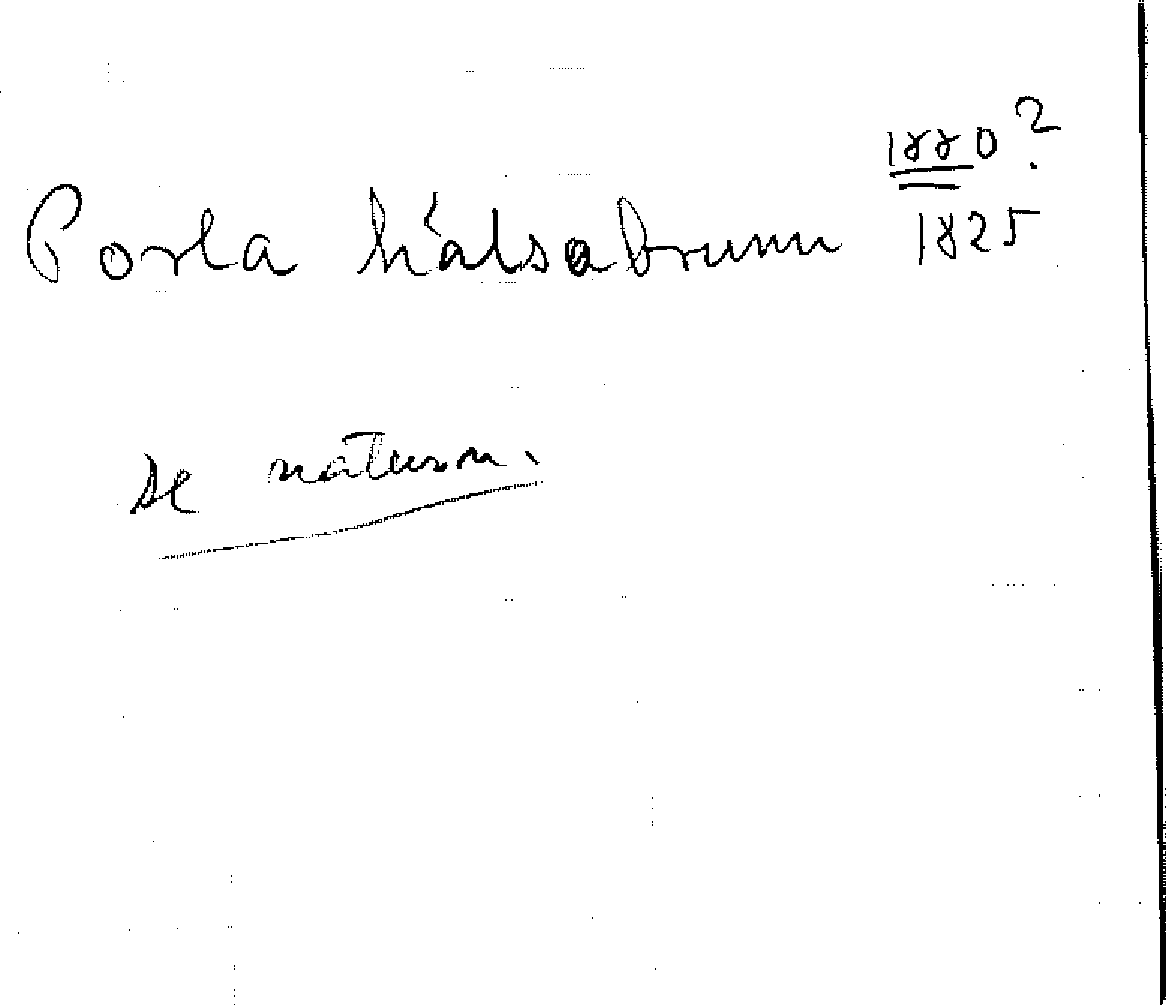 1880?
Porla hälsobrunn 1825
se naturen.